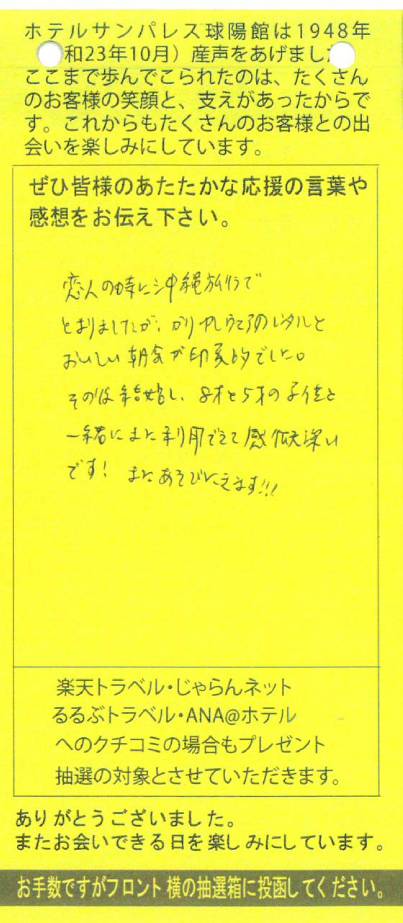 ホテルサンパレス球陽館は1948年
和23年10月）産声をあげまし
ここまで歩んでこられたのは、たくさん
のお客様の笑顔と、支えがあったからで
す。これからもたくさんのお客様との出
会いを楽しみにしています。
ぜひ皆様のあたたかな応援の言葉や
感想をお伝え下さい。
恋人の時に沖縄旅行で
とまりましたが、かりゆしウエアのレンタルと
おいしい朝食が印象的でした。
その後結婚し、8才と5才の子供と
一緒にまた利用できて感慨深い
です! またあそびにきます!!!
楽天トラベル・じゃらんネット
るるぶトラベル・ANA@ホテル
へのクチコミの場合もプレゼント
抽選の対象とさせていただきます。
ありがとうございました。
またお会いできる日を楽しみにしています。
お手数ですがフロント横の抽選箱に投函してください。